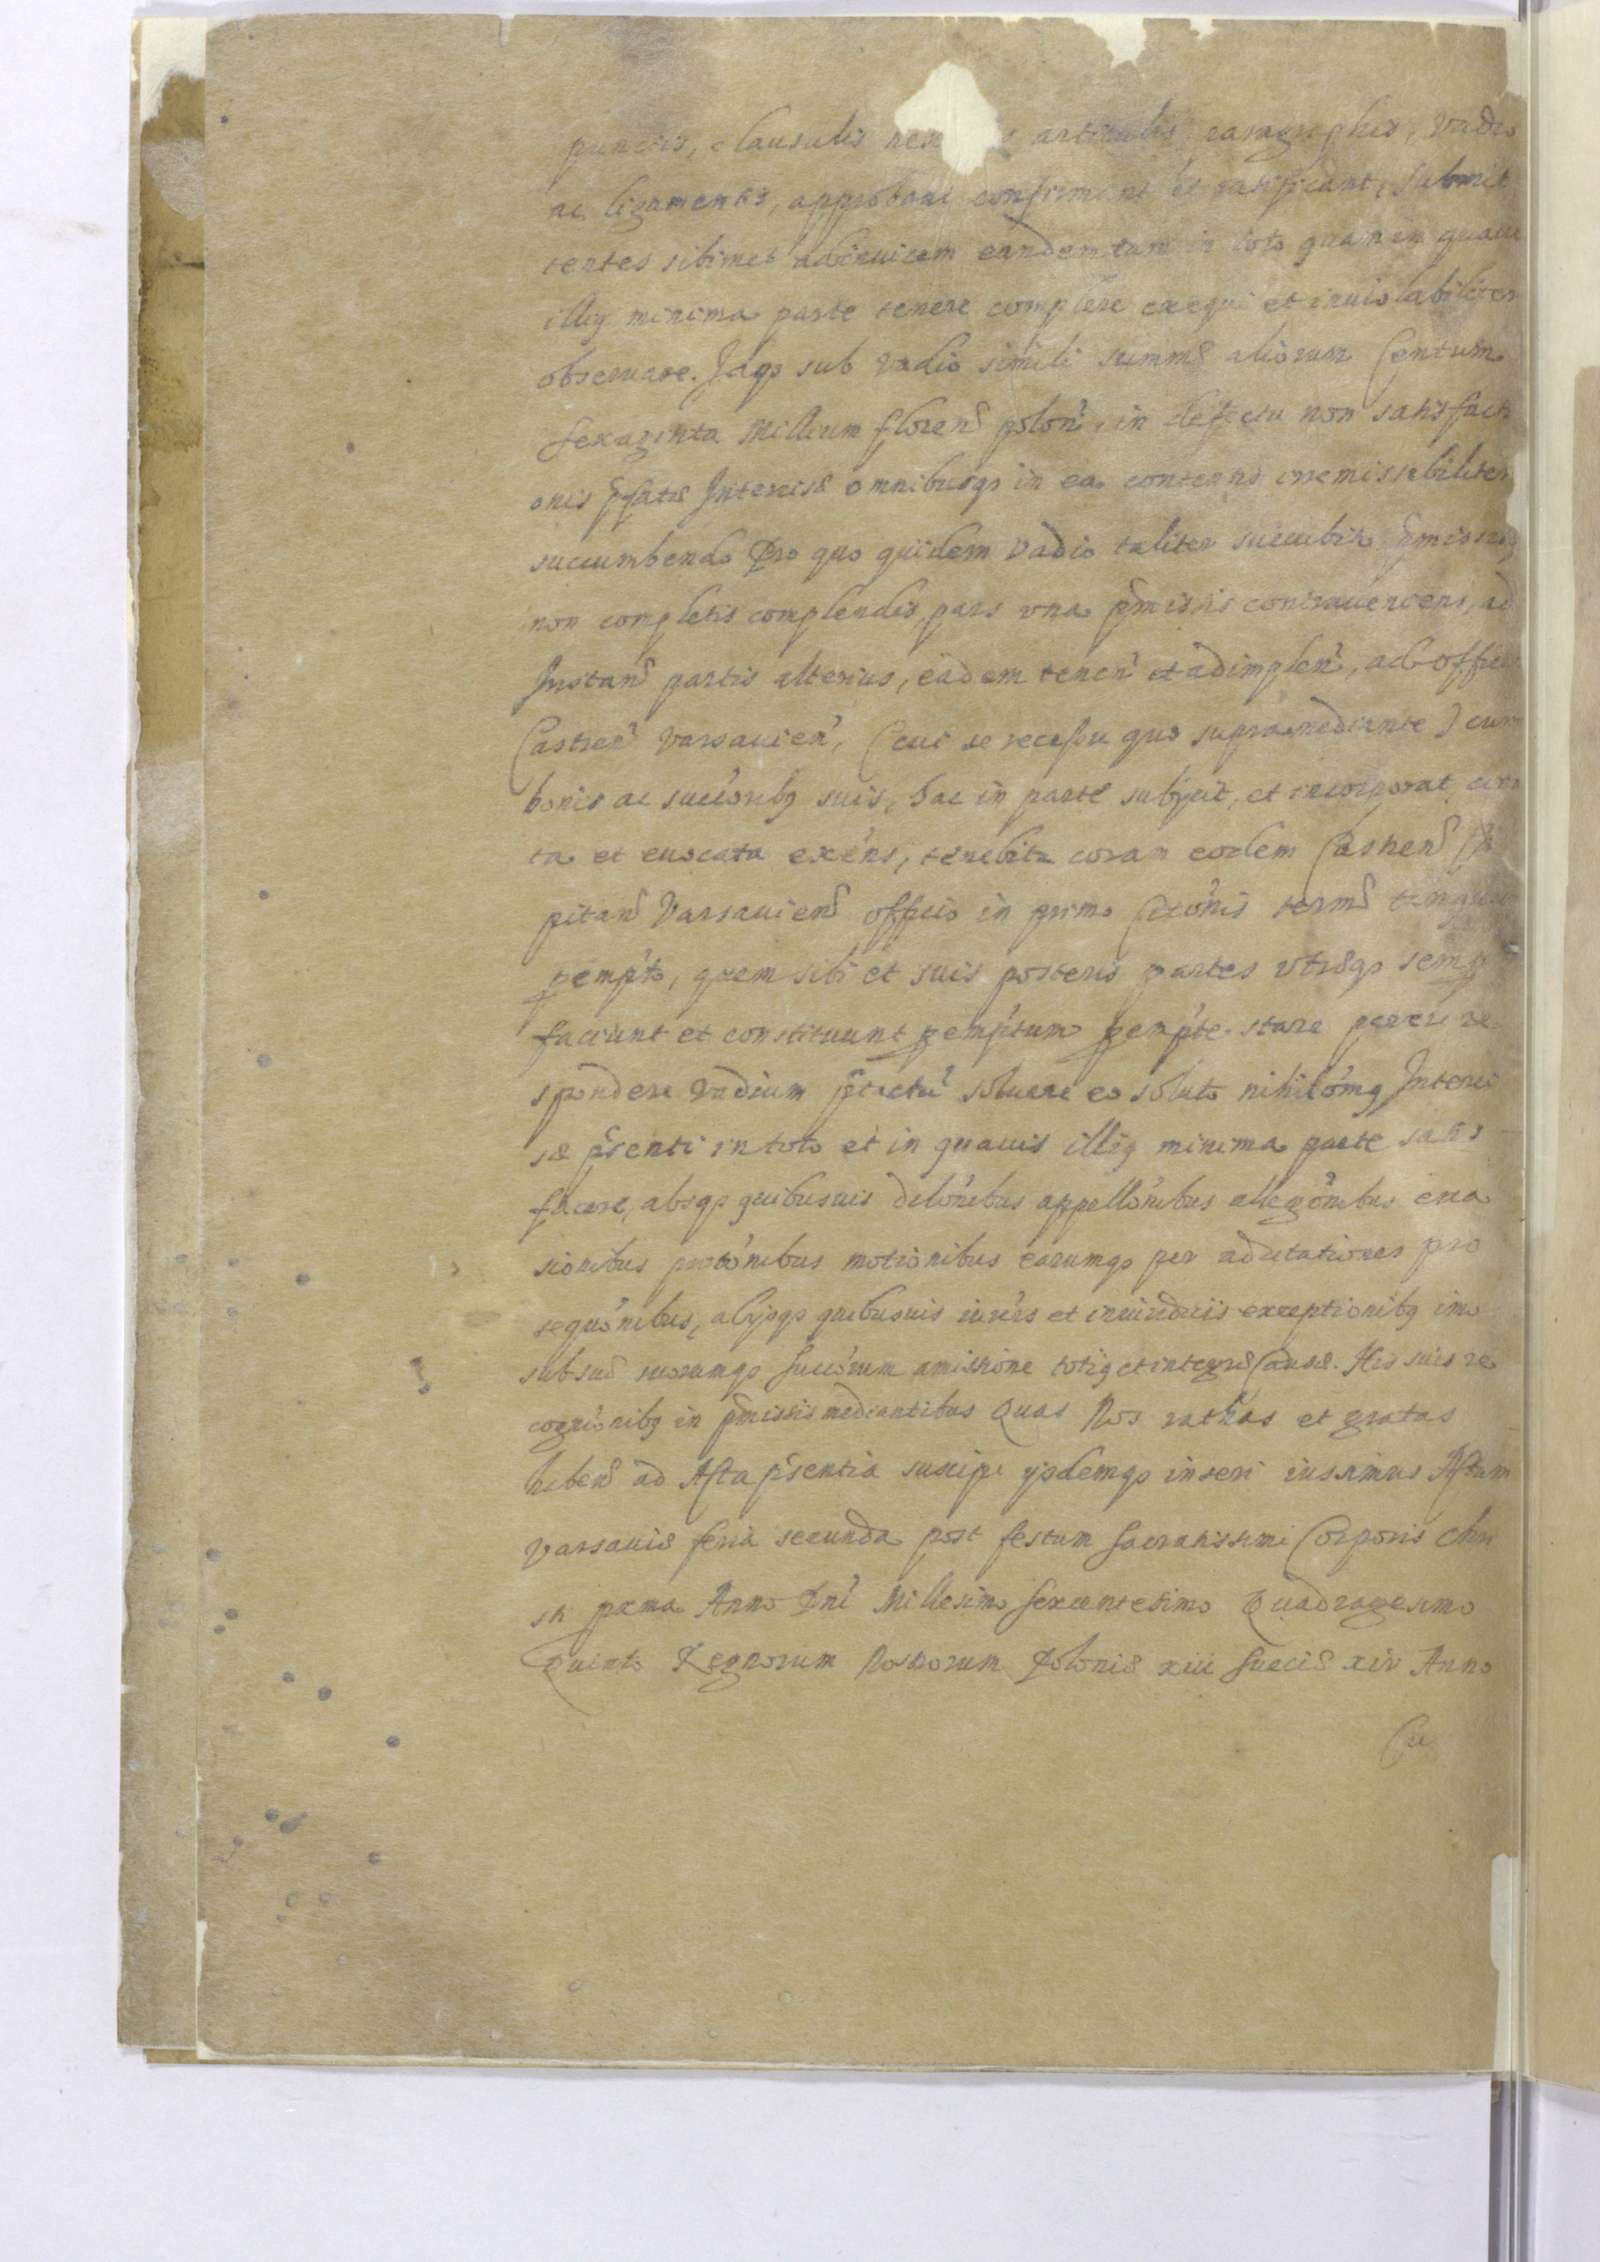 punctis, clausulis articulis paragraphis, vadio
ac ligamentis, approbant confirmant et ratificant, submit
tentes sibimet adinuicem eandem tam in toto quam in quauis
illiq minima parte tenere complere exequi et inuiolabiliter
obseruare. Idqз sub vadio simili summæ aliorum Centum
sexaginta Millium floren polon, in defectu non satisfacti
onis pfatæ Intercisæ omnibusqз in ea contentis irremissibiliter
succumbendo Pro quo quidem vadio taliter succubito pmissis
non completis complendis, pars vna pmissis contraueniens, ad
Instan partis alterius, eadem tenen et adimplen, ad Officiu
Castren Varsauien, (cui se recessu quo supra mediante) cum
bonis ac succoribq suis, hac in parte subijcit, et incorporat cita
ta et euocata exens, tenebitr coram eodem Castren
pitan Varsauien officio in primo Citonis termo tanquam
pempto, quem sibi et suis posteris partes vtræqз semp
faciunt et constituunt pemptum pempte stare parere re
spondere vadium ptactu soluere eo soluto nihilomq Interci
sæ psenti in toto et in quauis illiq minima parte satis
facere, absqз quibusuis dilonibus appellonibus allegonibus eua
sionibus motionibus earumqз per adcitationes pro
sequonibus, alijsqз quibusuis iuris et exceptionibq imo
sub suæ suorumqз succorum amissione totiq et integræ Causæ. His suis re
cognonibq in pmissis mediantibus Quas Nos rathas et gratas
haben ad Acta psentia suscipi ijsdemqз inseri iussimus Actum
Varsauiæ feria secunda post festum Sacratissimi Corporis Chri
sti pxma Anno Dni Millesimo Sexcentesimo Quadragesimo
Quinto Regnorum Nostrorum Poloniæ xiii Sueciæ xiv Anno